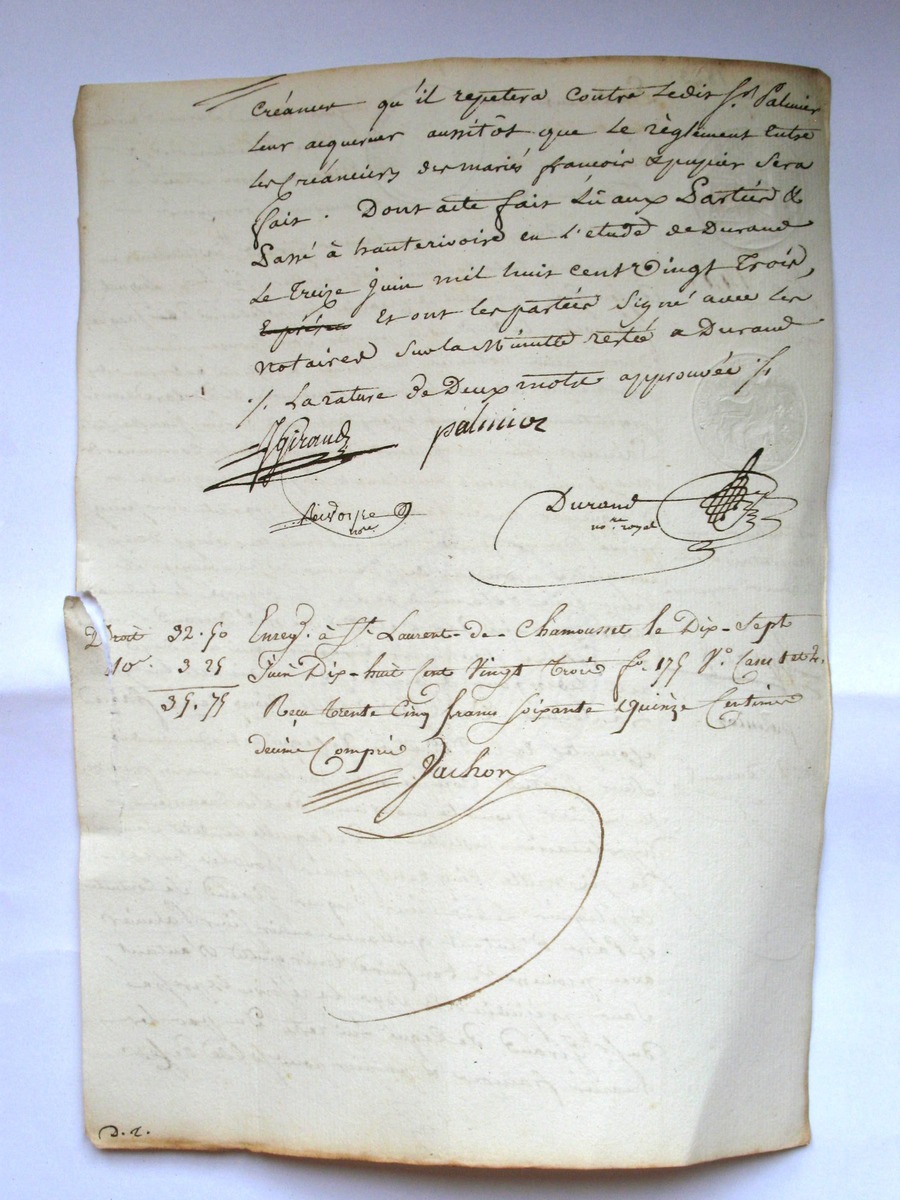 créances qu'il repetera contre Ledit Sr. Palmier
leur acquereur aussitôt que le règlement entre
les Créanciers des mariés francois & pupier sera
fait. Dont acte fait Lû aux Parties &
Passé à hauterivoire en l'etude de Durand
Le Treize Juin mil huit cent Vingt Trois,
Et ont les parties signé avec les
notaires sur la Minutte restée a Durand
·/. La rature de Deux mots approuvée ·/.
Giraud palmier
nore.
Durand
nore. royal
Droit 32.50 Enreg. à St. Laurent-de-Chamousset le Dix-Sept
10e. 3 25 Juin Dix-huit Cent Vingt Trois fo. 175 Vo. Cases 1 et 2.
35.75 Recu trente Cinq francs soixante & quinze Centimes
decime Compris
Jachon
D. 2.